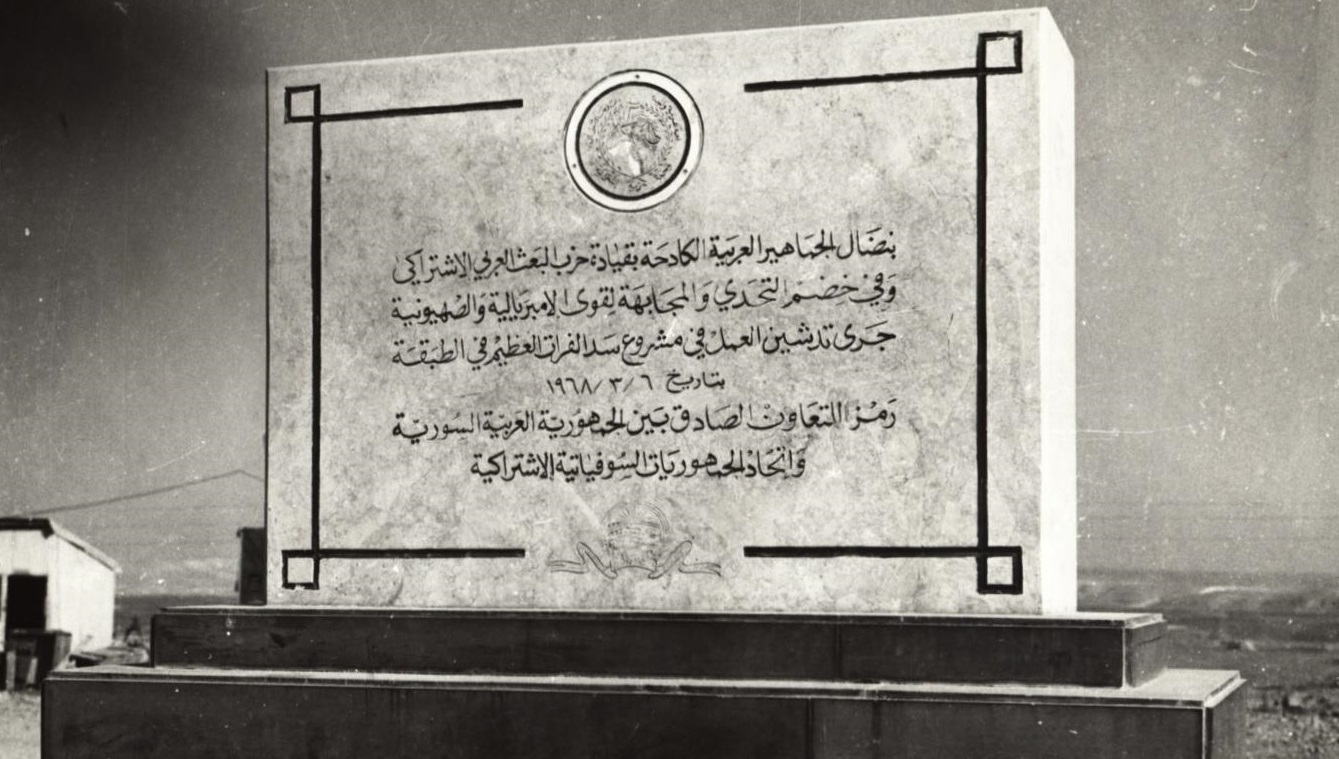 بنضال الجماهير العربية الكادحة بقيادة حزب البعث العربي الاشتراكي
وفي خضم التحدي والمجابهة لقوى الامبريالية والصهيونية
جرى تدشين العمل في مشروع سد الفرات العظيم في الطبقة
بتاريخ ٦ / ٣ / ١٩٦٨
رمز للتعاون الصادق بين الجمهورية العربية السورية
واتحاد الجمهوريات السوفياتية الاشتراكية